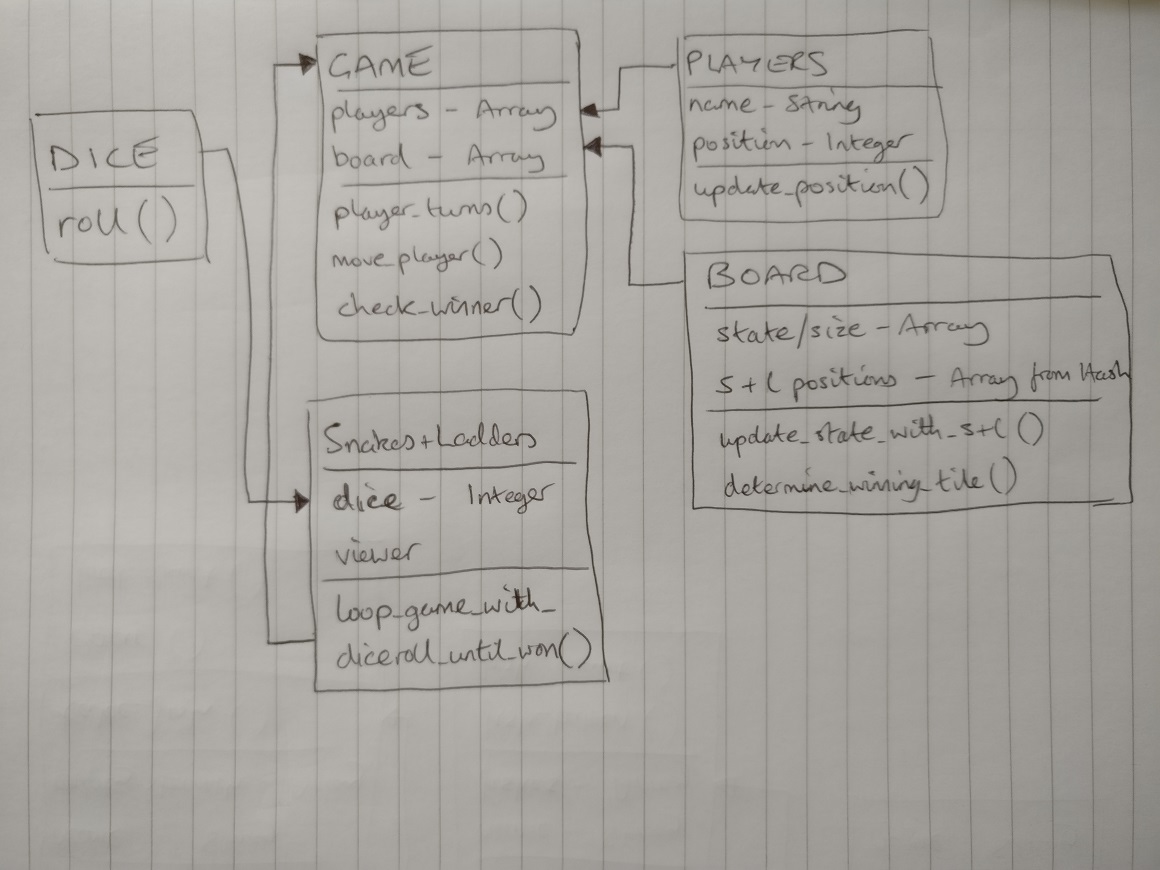 DICE
roll()
GAME
players - Array
board - Array
player_turns()
move_player()
check_winner()
PLAYERS
name - String
position - Integer
update_position()
BOARD
state/size - Array
S+L positions - Array from Hash
update_state_with_s+l()
determine_winning_tile()
Snakes+Ladders
dice - Integer
viewer
loop_game_with_
diceroll_until_won()